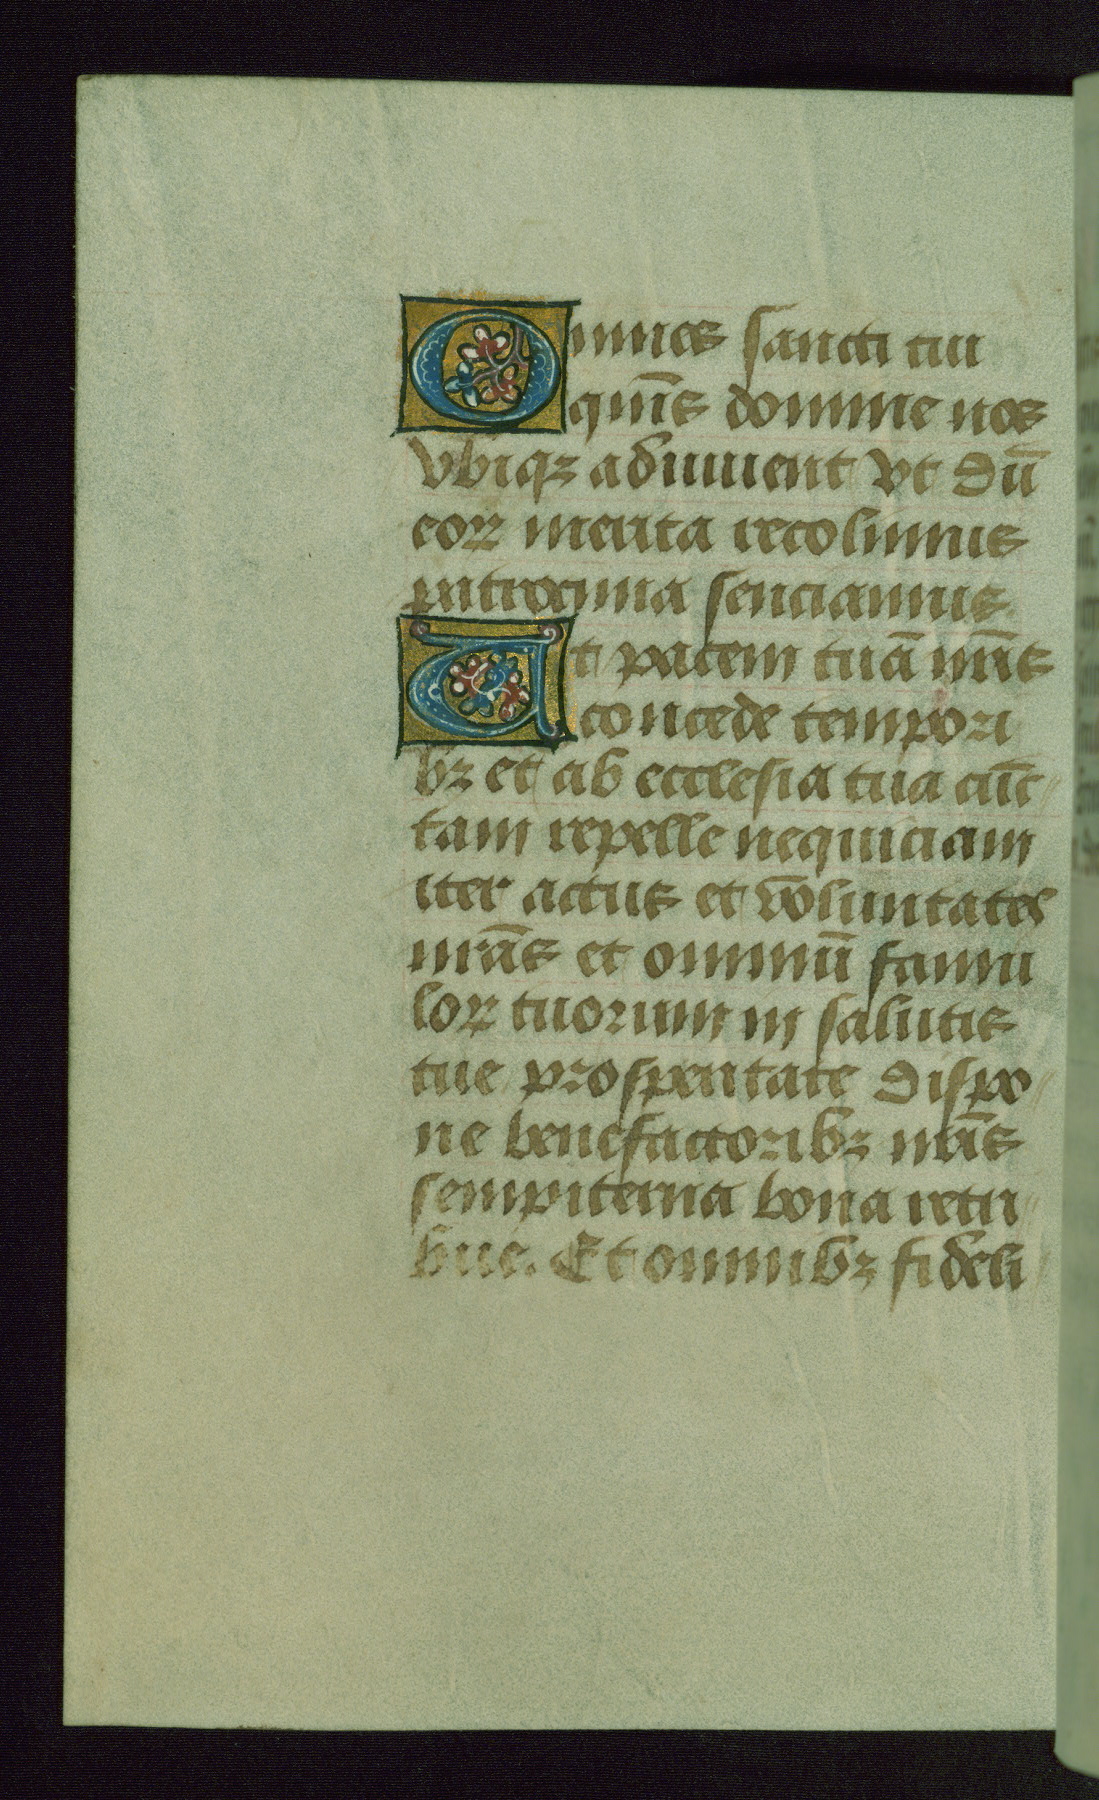 Omnes sancti tui
qum̄s domine nos
vbiqꝫ adiuuent vt dū
eoꝝ merita recolimus
patrocinia senciamus
Et pacem tuā nr̄is
concede tempori
bꝫ et ab ecclesia tua cūc
tam repelle nequiciam
iter actus et voluntates
nrās et omniū famu
loꝝ tuorum in salutis
tue prosperitate dispo
ne benefactoribꝫ nr̄is
sempiterna bona retri
bue. Et omnibꝫ fideli